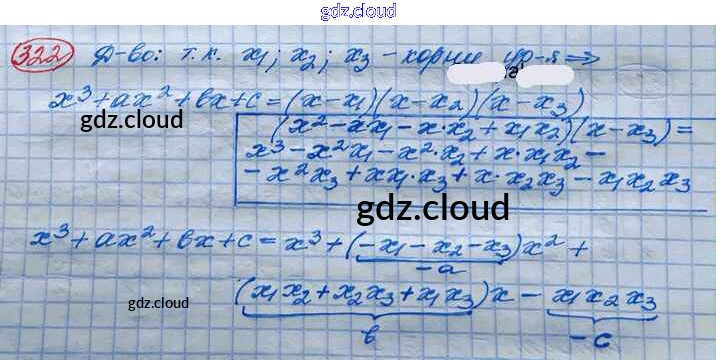 gdz.cloud
322 Д-во: т.к. x₁; x₂; x₃ – корни ур-я ⇒
x³ + ax² + bx + c = (x – x₁)(x – x₂)(x – x₃)
gdz.cloud
(x² – xx₁ – x·x₂ + x₁x₂)(x – x₃) =
x³ – x²x₁ – x²·x₂ + x·x₁x₂ –
– x²x₃ + xx₁·x₃ + x·x₂x₃ – x₁x₂x₃
gdz.cloud
x³ + ax² + bx + c = x³ + (–x₁ – x₂ – x₃)x² +
–a
gdz.cloud
(x₁x₂ + x₂x₃ + x₁x₃)x – x₁x₂x₃
b –c